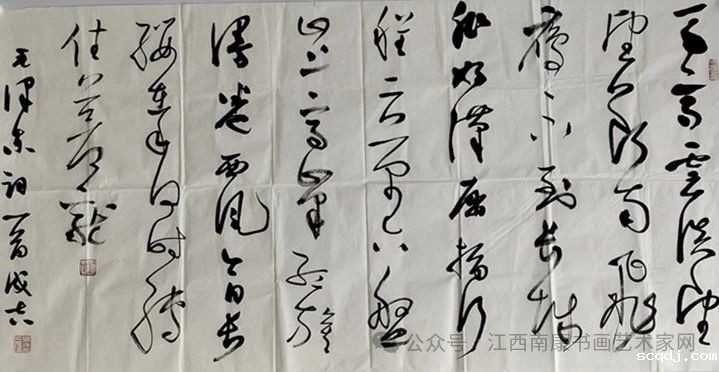 天高雲淡望
断南飛
雁不到长城
非好漢屈指行
程二万六盤
山上高峰红旗
漫卷西风今日长
缨在手何时缚
住苍龙
毛泽东词一首成志
公众号·江西南康书画艺术家网
scqdj.com